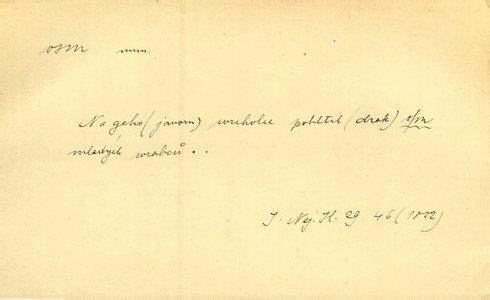 osm num.
Na geho (javoru) wrcholce pohltil (drak) osm
mladých wrabců . .
J. Nej. Il. 29 46 (1802)